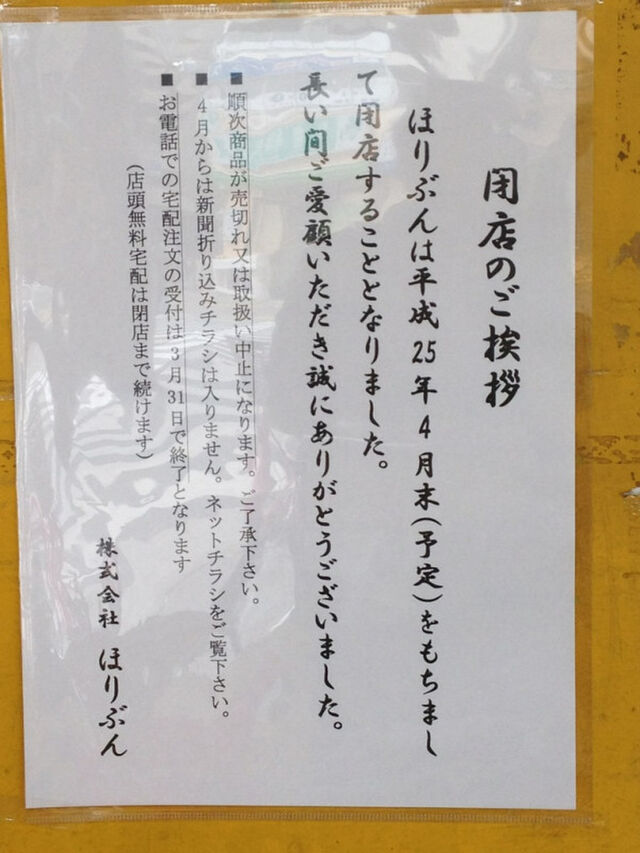 閉店のご挨拶
ほりぶんは平成25年4月末(予定)をもちまし
て閉店することとなりました。
長い間ご愛顧いただき誠にありがとうございました。
■ 順次商品が売切れ又は取扱い中止になります。ご了承下さい。
■ 4月からは新聞折り込みチラシは入りません。ネットチラシをご覧下さい。
■ お電話での宅配注文の受付は3月31日で終了となります
(店頭無料宅配は閉店まで続けます)
株式会社 ほりぶん